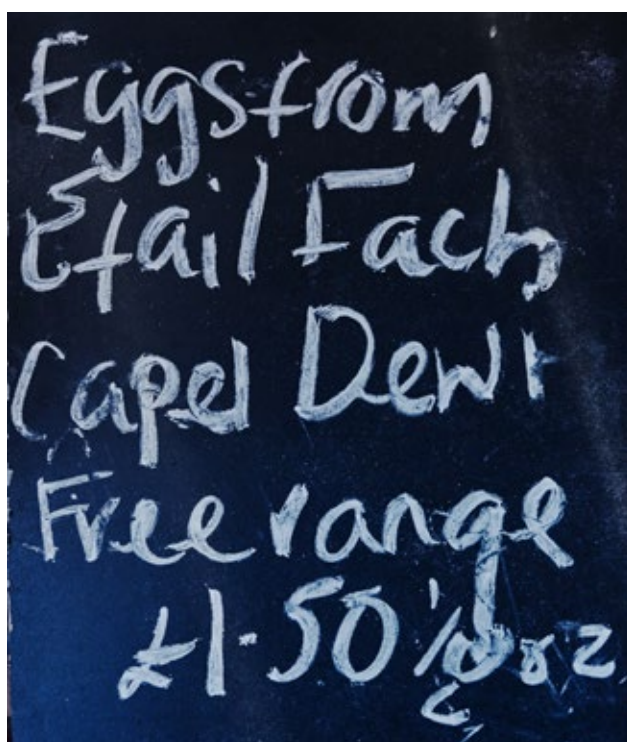 Eggs from
Efail Fach
Capel Dewi
Free range
£1.50 ½ doz